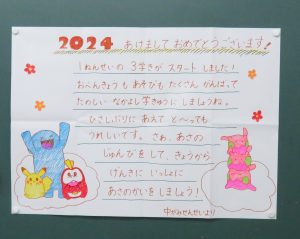 2024 あけまして おめでとうございます!
1ねんせいの 3学きが スタート しました!
おべんきょうも あそびも たくさん がんばって
たのしい なかよし学きゅうに しましょうね。
ひさしぶりに あえて と〜っても
うれしいです。 さぁ、あさの
じゅんびをして、きょうから
げんきに いっしょに
あさのかいを しましょう!
中がみせんせいより